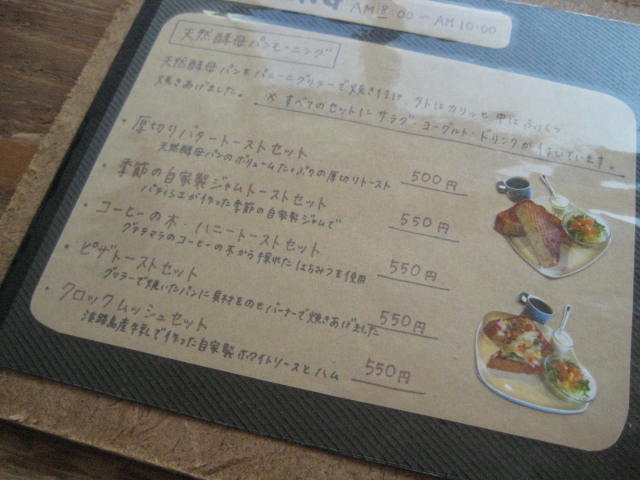 AM 8:00 ～ AM 10:00
天然酵母パンモーニング
天然酵母パンをパニーニグリラーで焼き付け、外はカリッと中はふんわり
焼きあげました。 ※すべてのセットにサラダ・ヨーグルト・ドリンクが付いています。
・厚切りバタートーストセット
天然酵母パンのボリュームたっぷりの厚切りトースト 500円
・季節の自家製ジャムトーストセット
パティシエが作った季節の自家製ジャムで 550円
・コーヒーの木 ハニートーストセット
グァテマラのコーヒーの木から採れたはちみつを使用 550円
・ピザトーストセット
グリラーで焼いたパンに具材をのせバーナーで焼きあげました 550円
・クロックムッシュセット
淡路島産牛乳で作った自家製ホワイトソースとハム 550円